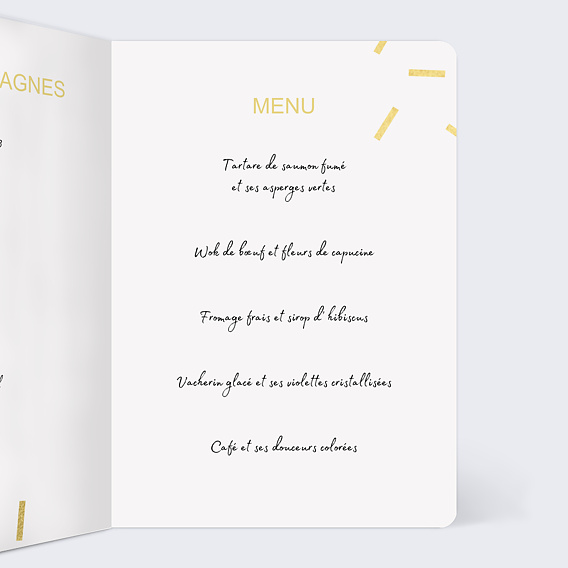 AGNES
MENU
Tartare de saumon fumé
et ses asperges vertes
Wok de bœuf et fleurs de capucine
Fromage frais et sirop d'hibiscus
Vacherin glacé et ses violettes cristallisées
Café et ses douceurs colorées